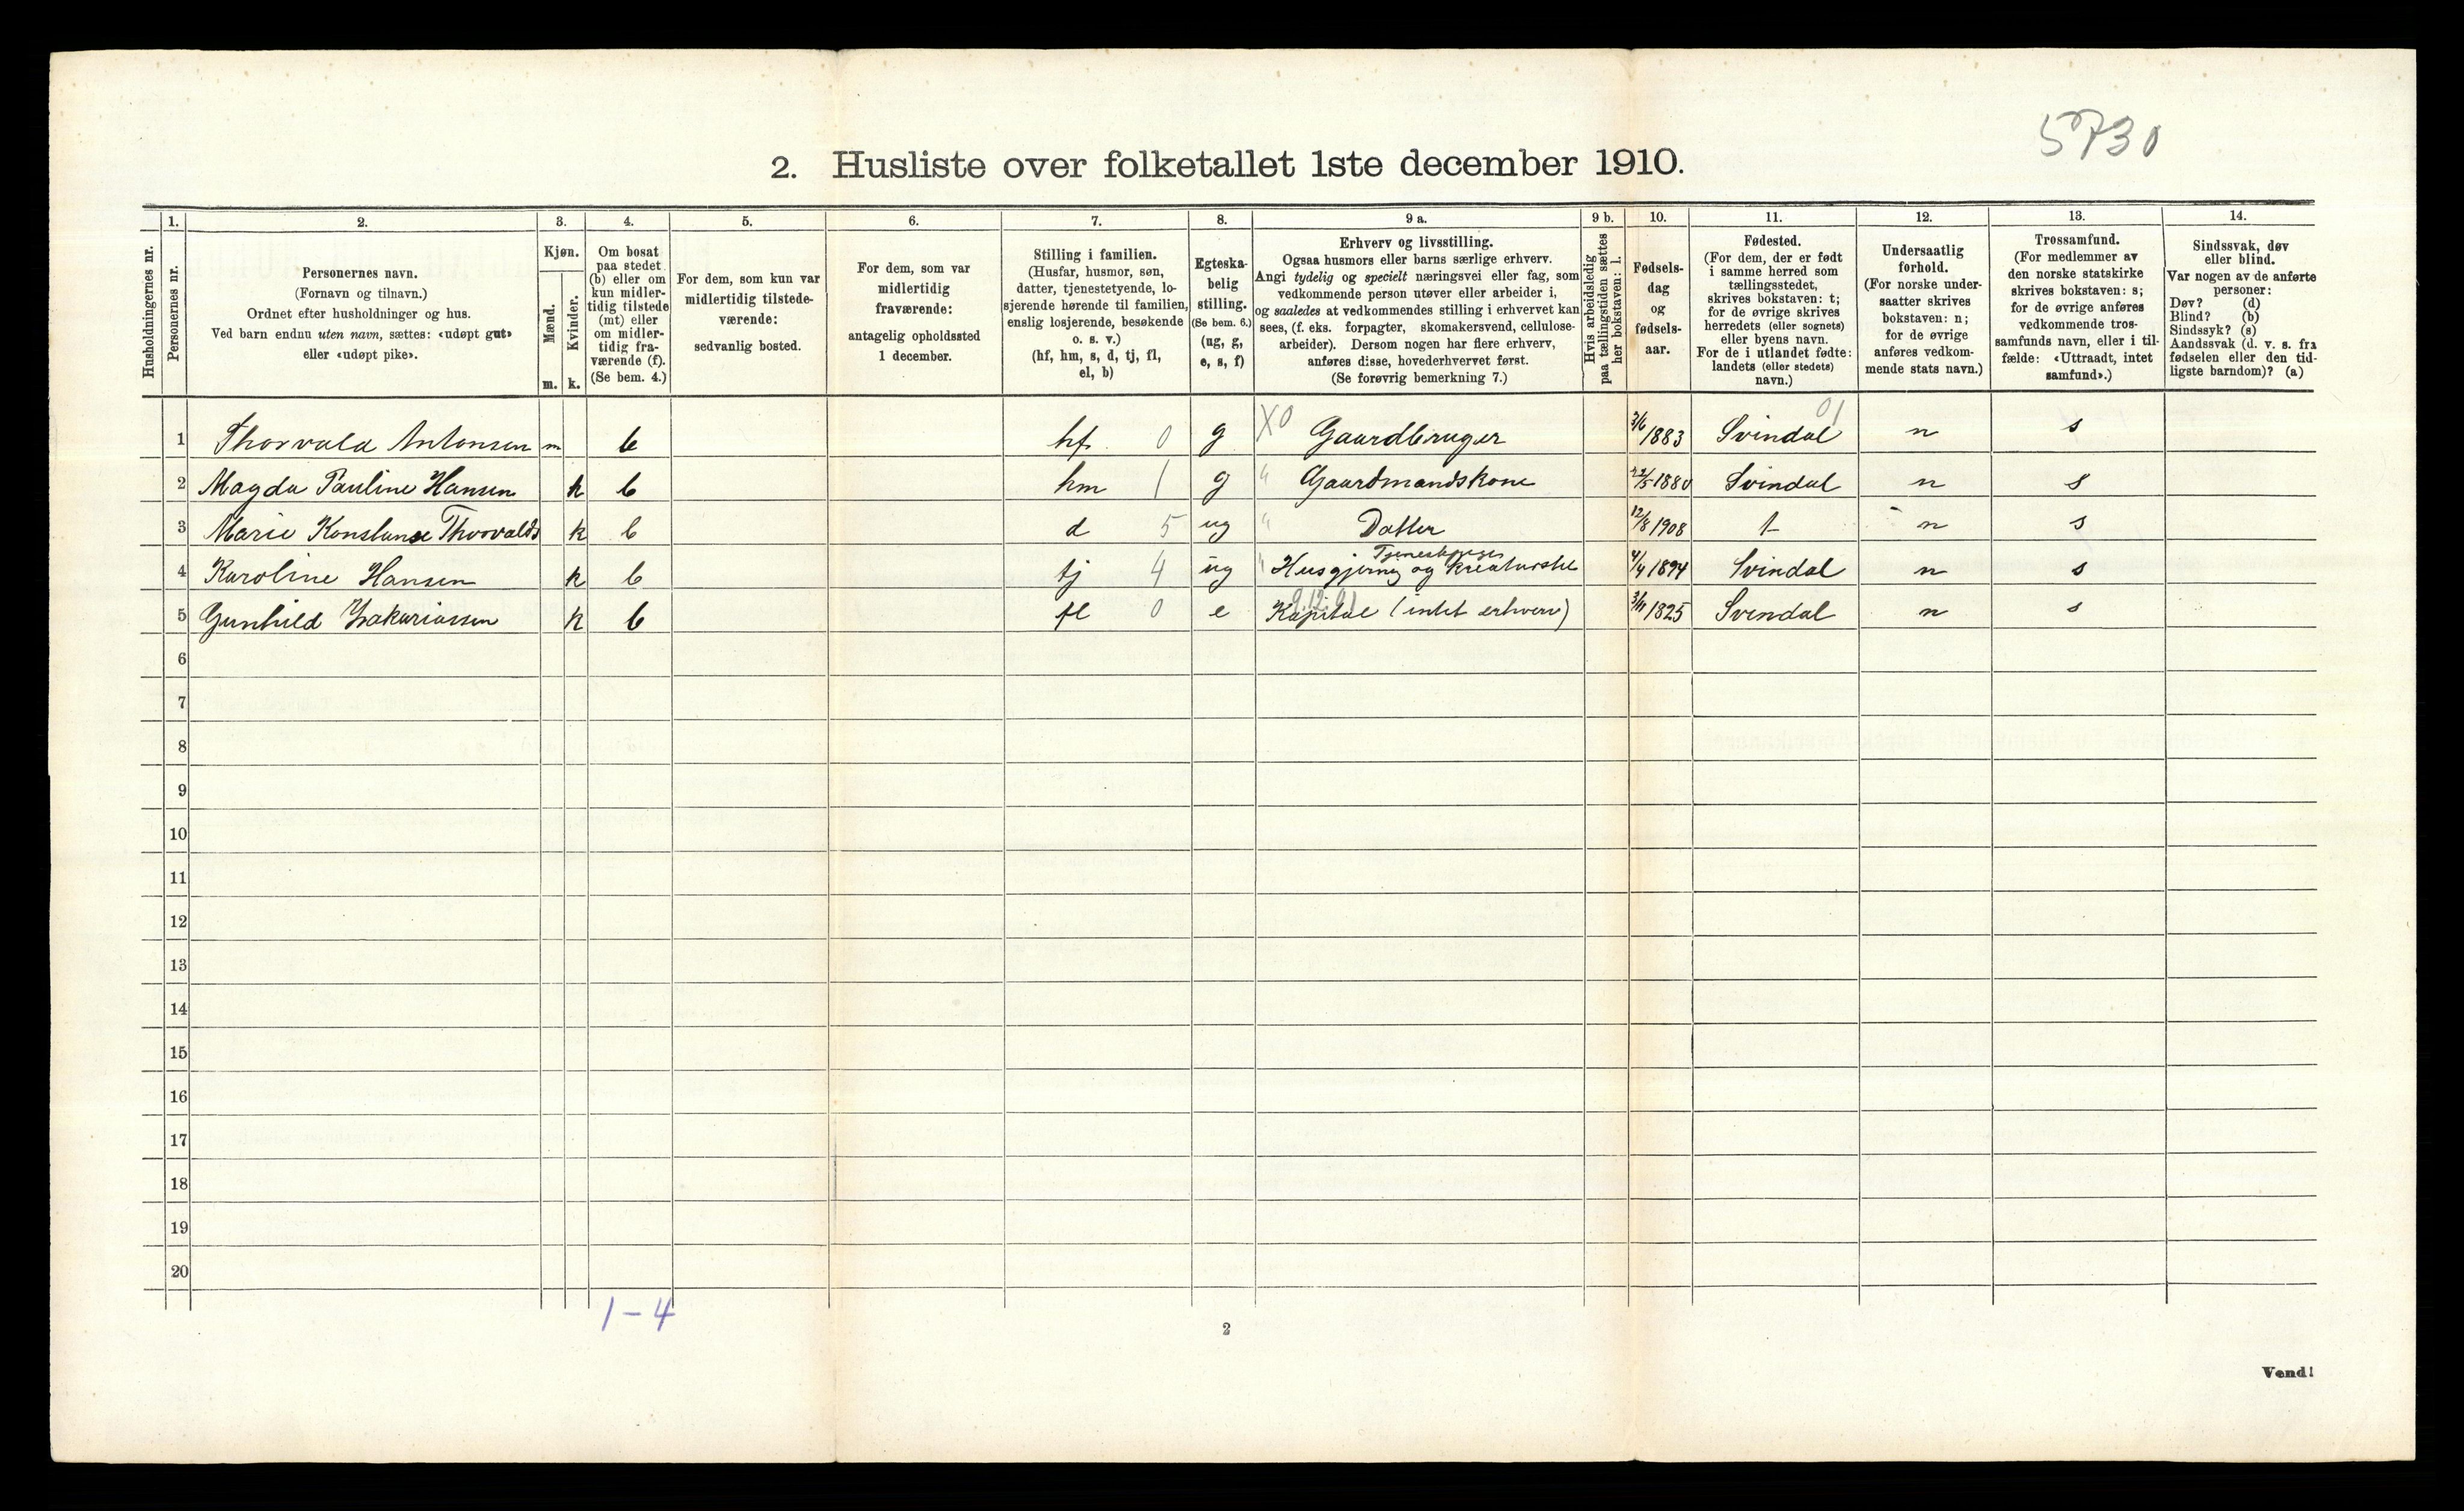 5730
2. Husliste over folketallet 1ste december 1910.
Husholdningernes nr.
1.
Personernes nr.
2.
Personernes navn.
(Fornavn og tilnavn.)
Ordnet efter husholdninger og hus.
Ved barn endnu uten navn, sættes: «udøpt gut»
eller «udøpt pike».
3.
Kjøn.
Mænd.
m.
Kvinder.
k.
4.
Om bosat
paa stedet
(b) eller om
kun midler-
tidig tilstede
(mt) eller
om midler-
tidig fra-
værende (f).
(Se bem. 4.)
5.
For dem, som kun var
midlertidig tilstede-
værende:
sedvanlig bosted.
6.
For dem, som var
midlertidig
fraværende:
antagelig opholdssted
1 december.
7.
Stilling i familien.
(Husfar, husmor, søn,
datter, tjenestetyende, lo-
sjerende hørende til familien,
enslig losjerende, besøkende
o. s. v.)
(hf, hm, s, d, tj, fl,
el, b)
8.
Egteska-
belig
stilling.
(Se bem. 6.)
(ug, g,
e, s, f)
9 a.
Erhverv og livsstilling.
Ogsaa husmors eller barns særlige erhverv.
Angi tydelig og specielt næringsvei eller fag, som
vedkommende person utøver eller arbeider i,
og saaledes at vedkommendes stilling i erhvervet kan
sees, (f. eks. forpagter, skomakersvend, cellulose-
arbeider). Dersom nogen har flere erhverv,
anføres disse, hovederhvervet først.
(Se forøvrig bemerkning 7.)
9 b.
Hvis arbeidsledig
paa tællingstiden sættes
her bokstaven: l.
10.
Fødsels-
dag
og
fødsels-
aar.
11.
Fødested.
(For dem, der er født
i samme herred som
tællingsstedet,
skrives bokstaven: t;
for de øvrige skrives
herredets (eller sognets)
eller byens navn.
For de i utlandet fødte:
landets (eller stedets)
navn.)
12.
Undersaatlig
forhold.
(For norske under-
saatter skrives
bokstaven: n;
for de øvrige
anføres vedkom-
mende stats navn.)
13.
Trossamfund.
(For medlemmer av
den norske statskirke
skrives bokstaven: s;
for de øvrige anføres
vedkommende tros-
samfunds navn, eller i til-
fælde: «Uttraadt, intet
samfund».)
14.
Sindssvak, døv
eller blind.
Var nogen av de anførte
personer:
Døv? (d)
Blind? (b)
Sindssyk? (s)
Aandssvak (d. v. s. fra
fødselen eller den tid-
ligste barndom)? (a)
1 Thorvald Antonsen m b hf 0 g X0 Gaardbruger 3/6 1883 Svindal 01 n s
2 Magda Pauline Hansen k b hm 1 g " Gaardmandskone 22/5 1880 Svindal n s
3 Marie Konstanse Thorvalds k b d 5 ug " Datter 12/8 1908 t n s
4 Karoline Hansen k b tj 4 ug " Husgjerning og kreaturstel Tjenestepige 4/4 1894 Svindal n s
5 Gunhild Zakariassen k b fl 0 e Kapital (intet erhverv) 9.12.01 3/11 1825 Svindal n s
6
7
8
9
10
11
12
13
14
15
16
17
18
19
20
1 - 4
2
Vend!